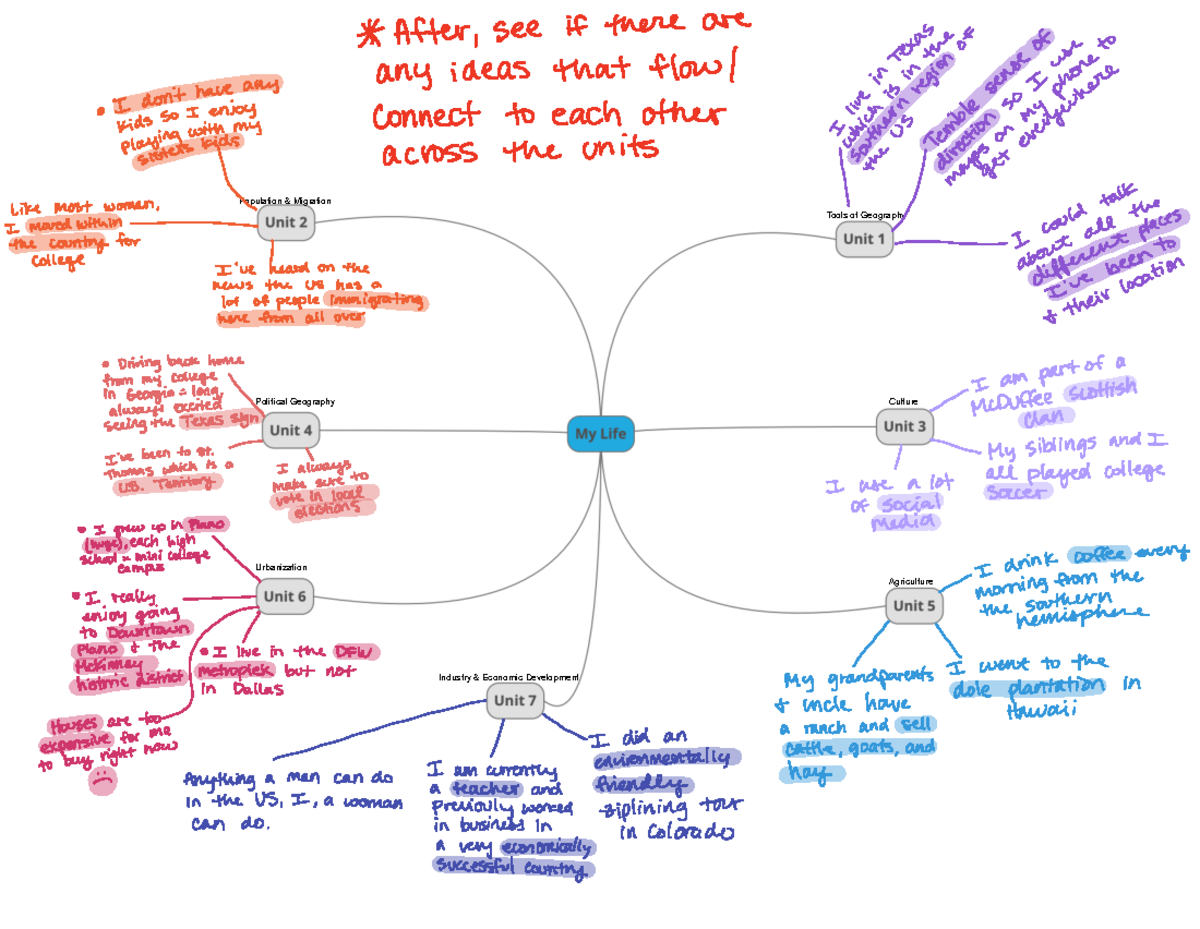 * After, see if there are
any ideas that flow/
connect to each other
across the units
• I don't have any
kids so I enjoy
playing with my
sisters kids
Like most women,
I moved within
the country for
college
Population & Migration
Unit 2
I've heard on the
news the US has a
lot of people immigrating
here from all over
I live in Texas
which is in the
southern region of
the US
Terrible sense of
direction so I use
maps on my phone to
get everywhere
Tools of Geography
Unit 1
I could talk
about all the
different places
I've been to
& their location
• Driving back home
from my college
in Georgia = long,
always excited
seeing the Texas sign
Political Geography
Unit 4
I've been to St.
Thomas which is a
US. Territory
I always
make sure to
vote in local
elections
My Life
Culture
Unit 3
I am part of a
McDuffee Scottish
clan
My siblings and I
all played college
soccer
I use a lot
of social
media
• I grew up in Plano
(huge), each high
school = mini college
campus
Urbanization
Unit 6
• I really
enjoy going
to Downtown
Plano & the
McKinney
historic district
• I live in the DFW
metroplex but not
in Dallas
Houses are too
expensive for me
to buy right now
Agriculture
Unit 5
I drink coffee every
morning from the
the southern
hemisphere
My grandparents
& uncle have
a ranch and sell
cattle, goats, and
hay
I went to the
dole plantation in
Hawaii
Industry & Economic Development
Unit 7
Anything a man can do
in the US, I, a woman
can do.
I am currently
a teacher and
previously worked
in business in
a very economically
successful country
I did an
environmentally
friendly
ziplining tour
in Colorado